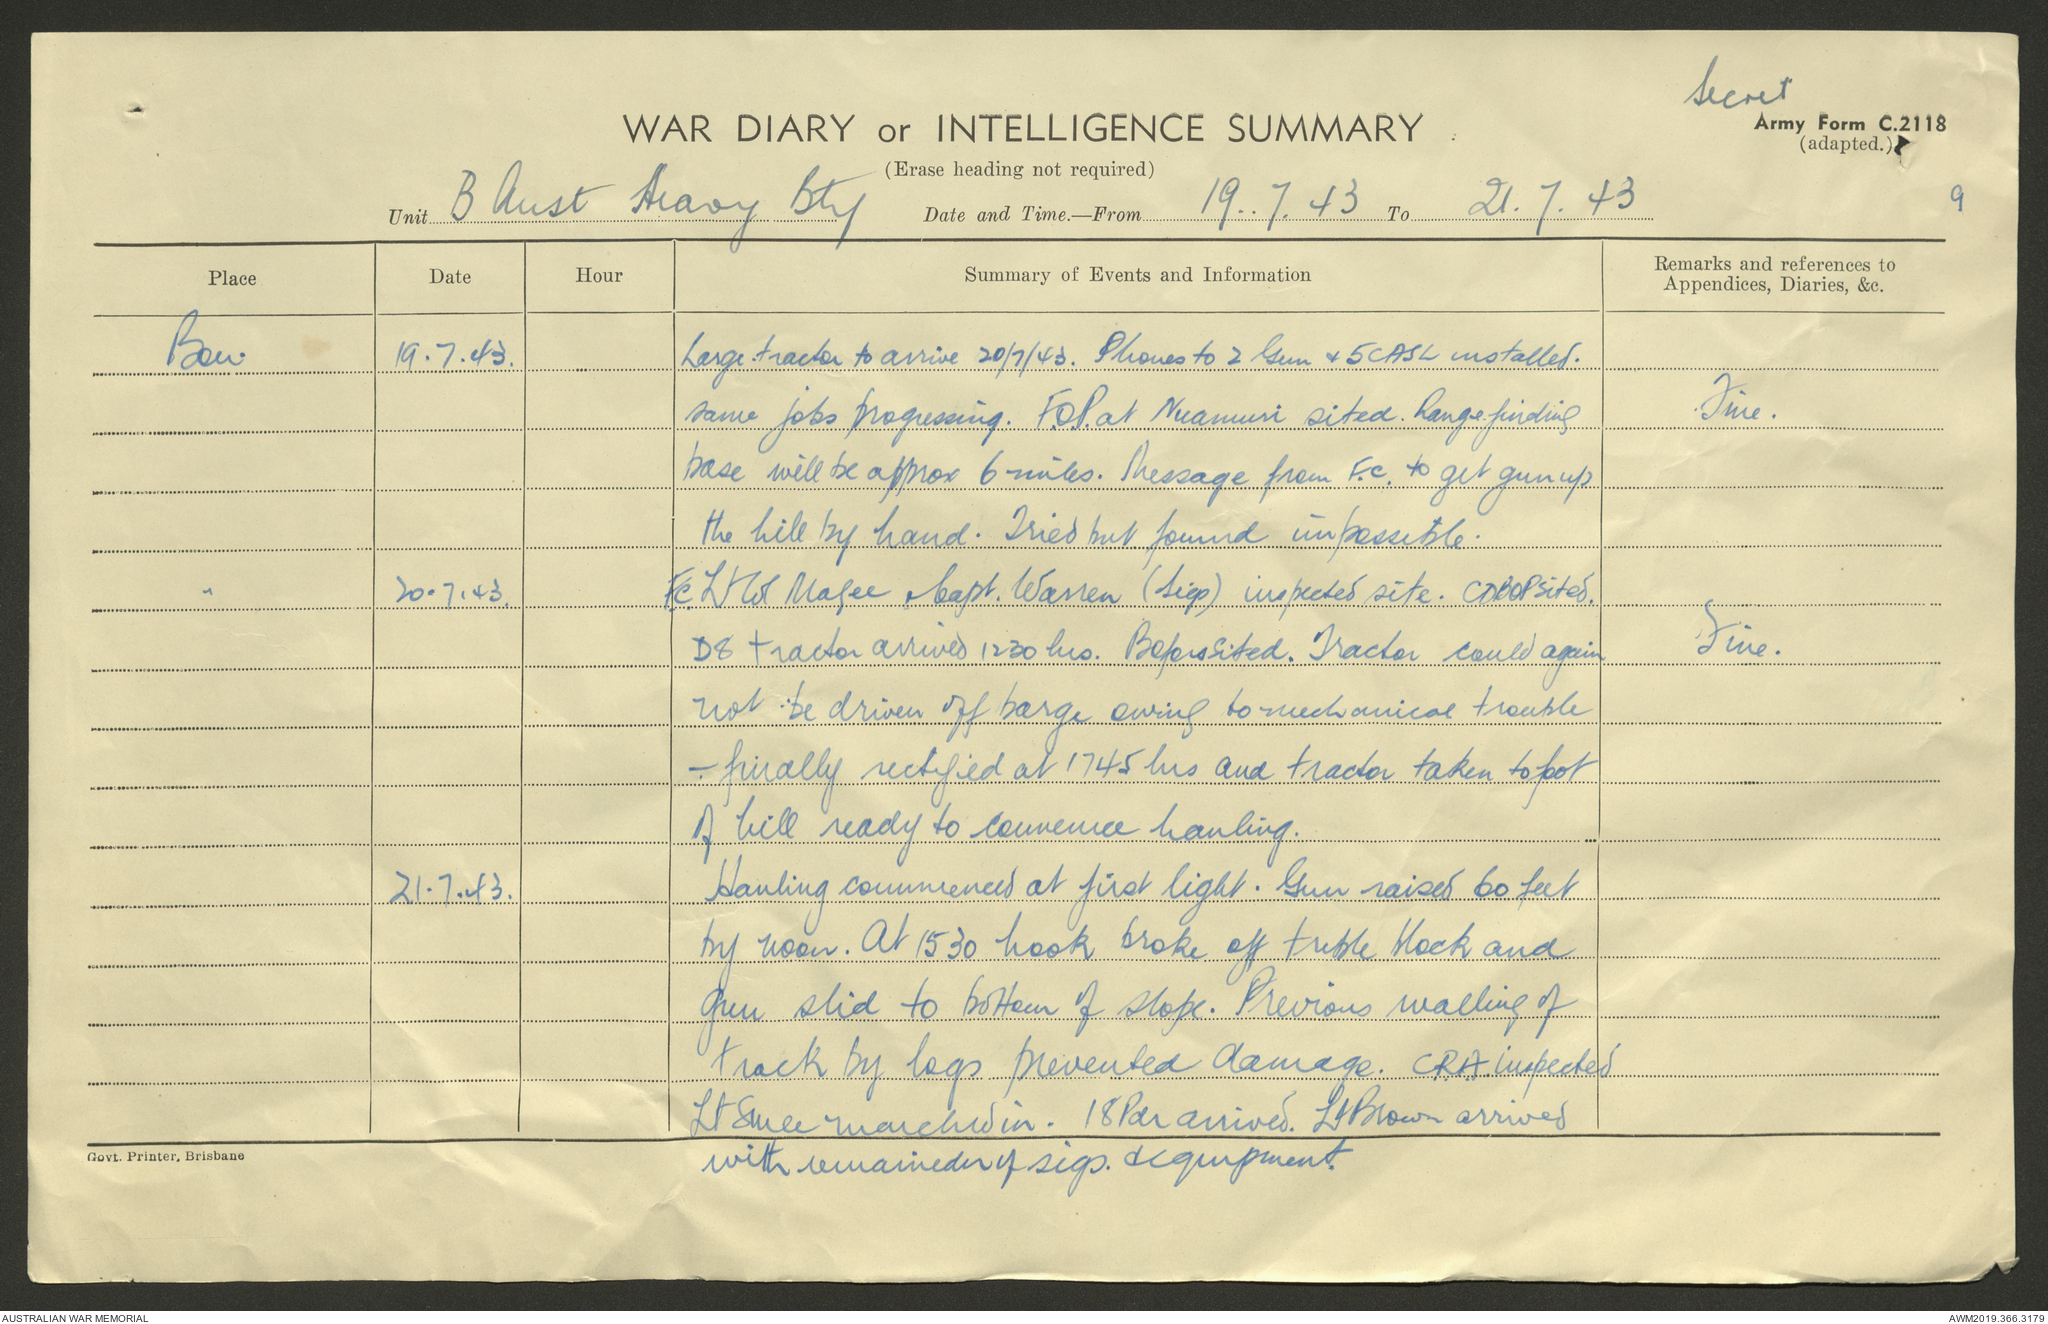 Secret
WAR DIARY or INTELLIGENCE SUMMARY
Army Form C.2118
(adapted.)
(Erase heading not required)
9
Unit B Aust Heavy Bty Date and Time.—From 19.7.43 To 21.7.43
Place Date Hour Summary of Events and Information Remarks and references to
Appendices, Diaries, &c.
19.7.43. Large tractor to arrive 20/7/43. Phones to 2 Gun & 5CASL installed.
same jobs progressing. F.O.P. at sited. Range finding Fine.
base will be approx 6 miles. Message from F.C. to get gun up
the hill by hand. Tried but found impossible.
" 20.7.43. F.C. Lt Col Magee & Capt. Warren (Sigs) inspected site. sited.
D8 tractor arrived 1230 hrs. Bofors sited. Tractor could again Fine.
not be driven off barge owing to mechanical trouble
- finally rectified at 1745 hrs and tractor taken to foot
of hill ready to commence hauling.
21.7.43. Hauling commenced at first light. Gun raised 60 feet
by noon. At 1530 hook broke off treble block and
gun slid to bottom of slope. Previous walling of
track by logs prevented damage. CRA inspected
Lt marched in. 18Pdr arrived. Lt Brown arrived
with remainder of sigs. & equipment.
Govt. Printer, Brisbane
AUSTRALIAN WAR MEMORIAL
AWM2019.366.3179